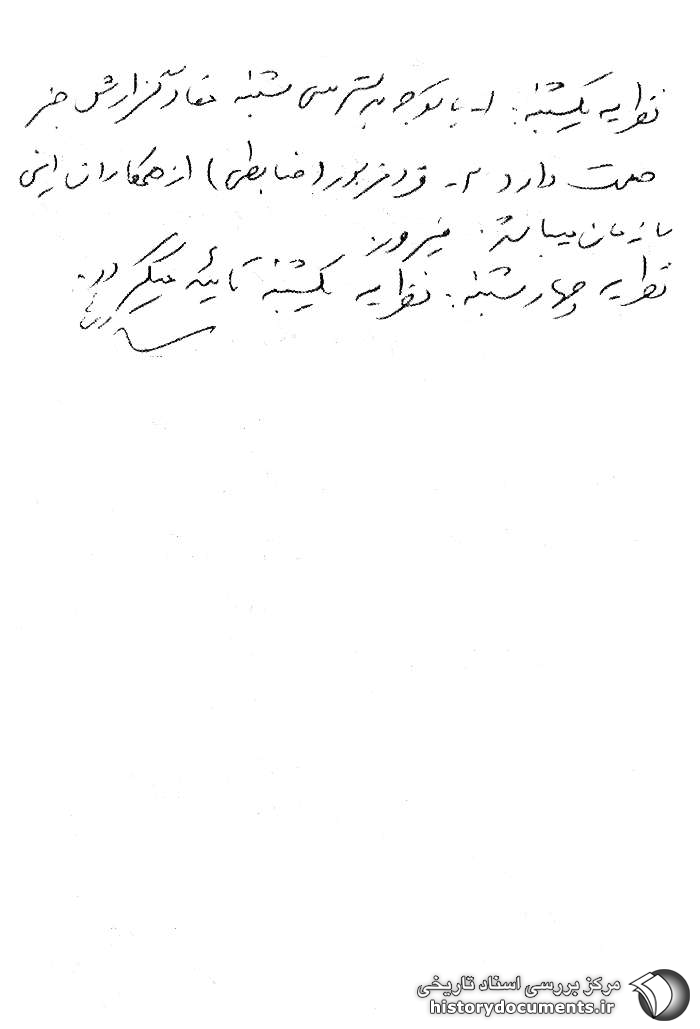 نظرایه یکشنبه: ۱- با توجه به دسترسی شنبه مفاد گزارش خبر
صحت دارد ۲- فرد مزبور (ضابطی) از همکاران این
سازمان میباشد. فیروز
نظرایه چهارشنبه: نظرایه یکشنبه تائید میگردد.
مرکز بررسی اسناد تاریخی
historydocuments.ir